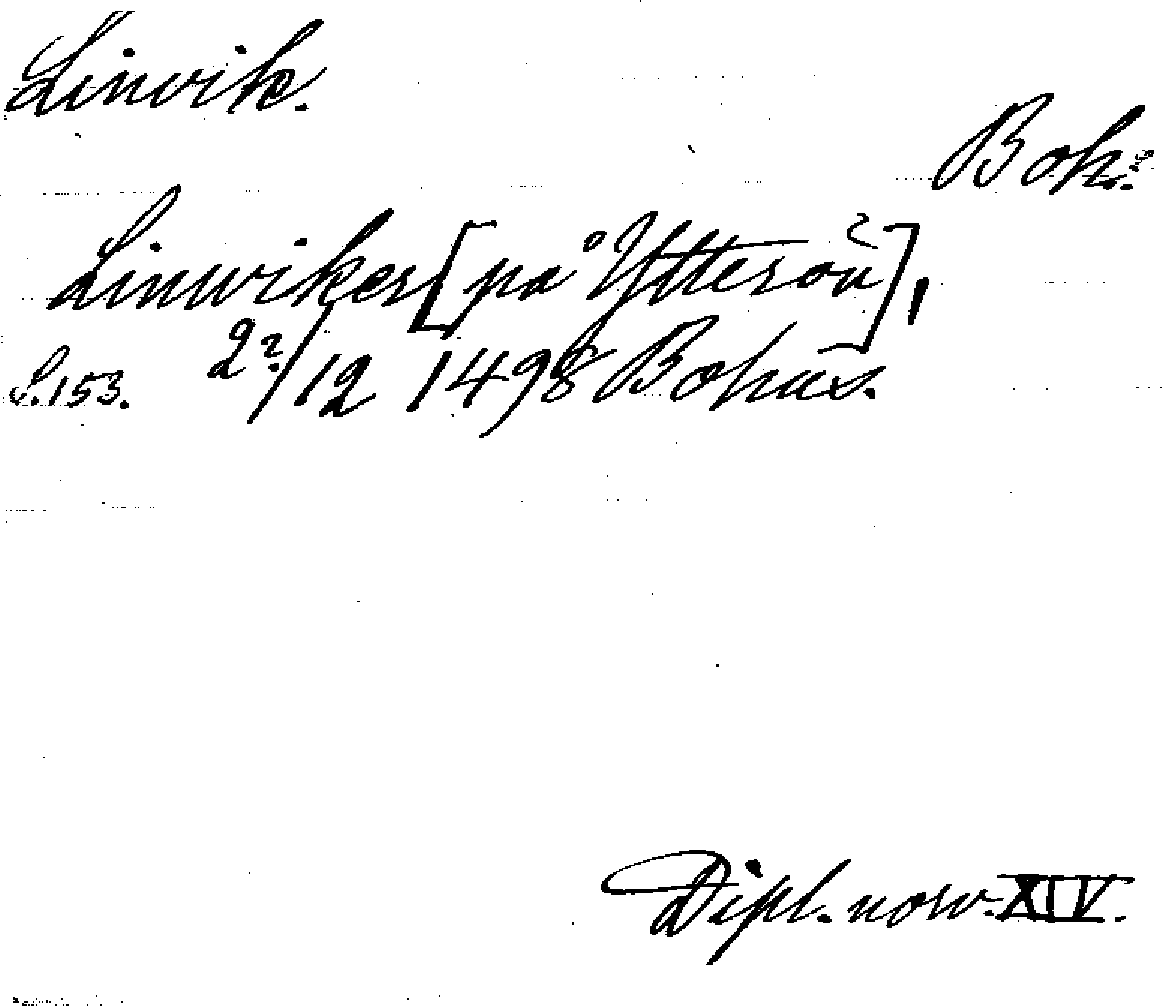 Linvik.
Boh:
Linwiker [på Ytterön],
S. 153. 2?/12 1498 Bohus.
Dipl. norv. XIV.